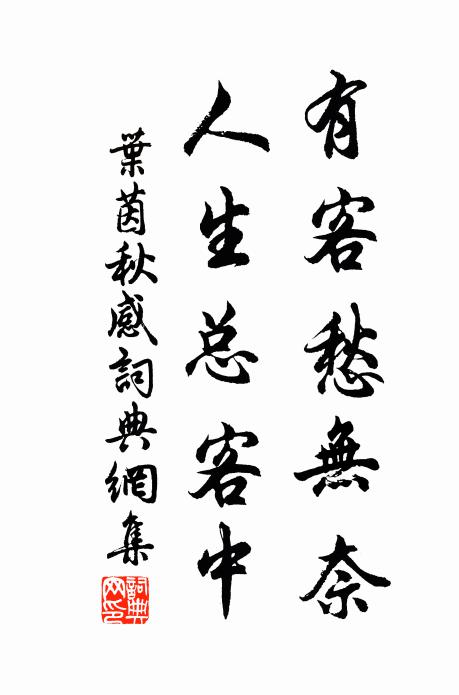 有客愁無奈
人生总客中
葉茵秋感詞典網集
詞典网印